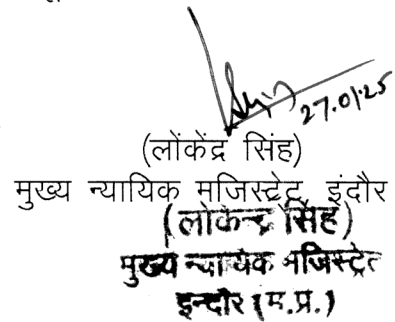 27.01.25
(लोंकेंद्र सिंह)
मुख्य न्यायिक मजिस्ट्रेट, इंदौर
(लोकेन्द्र सिंह)
मुख्य न्यायिक मजिस्ट्रेट
इन्दौर (म.प्र.)